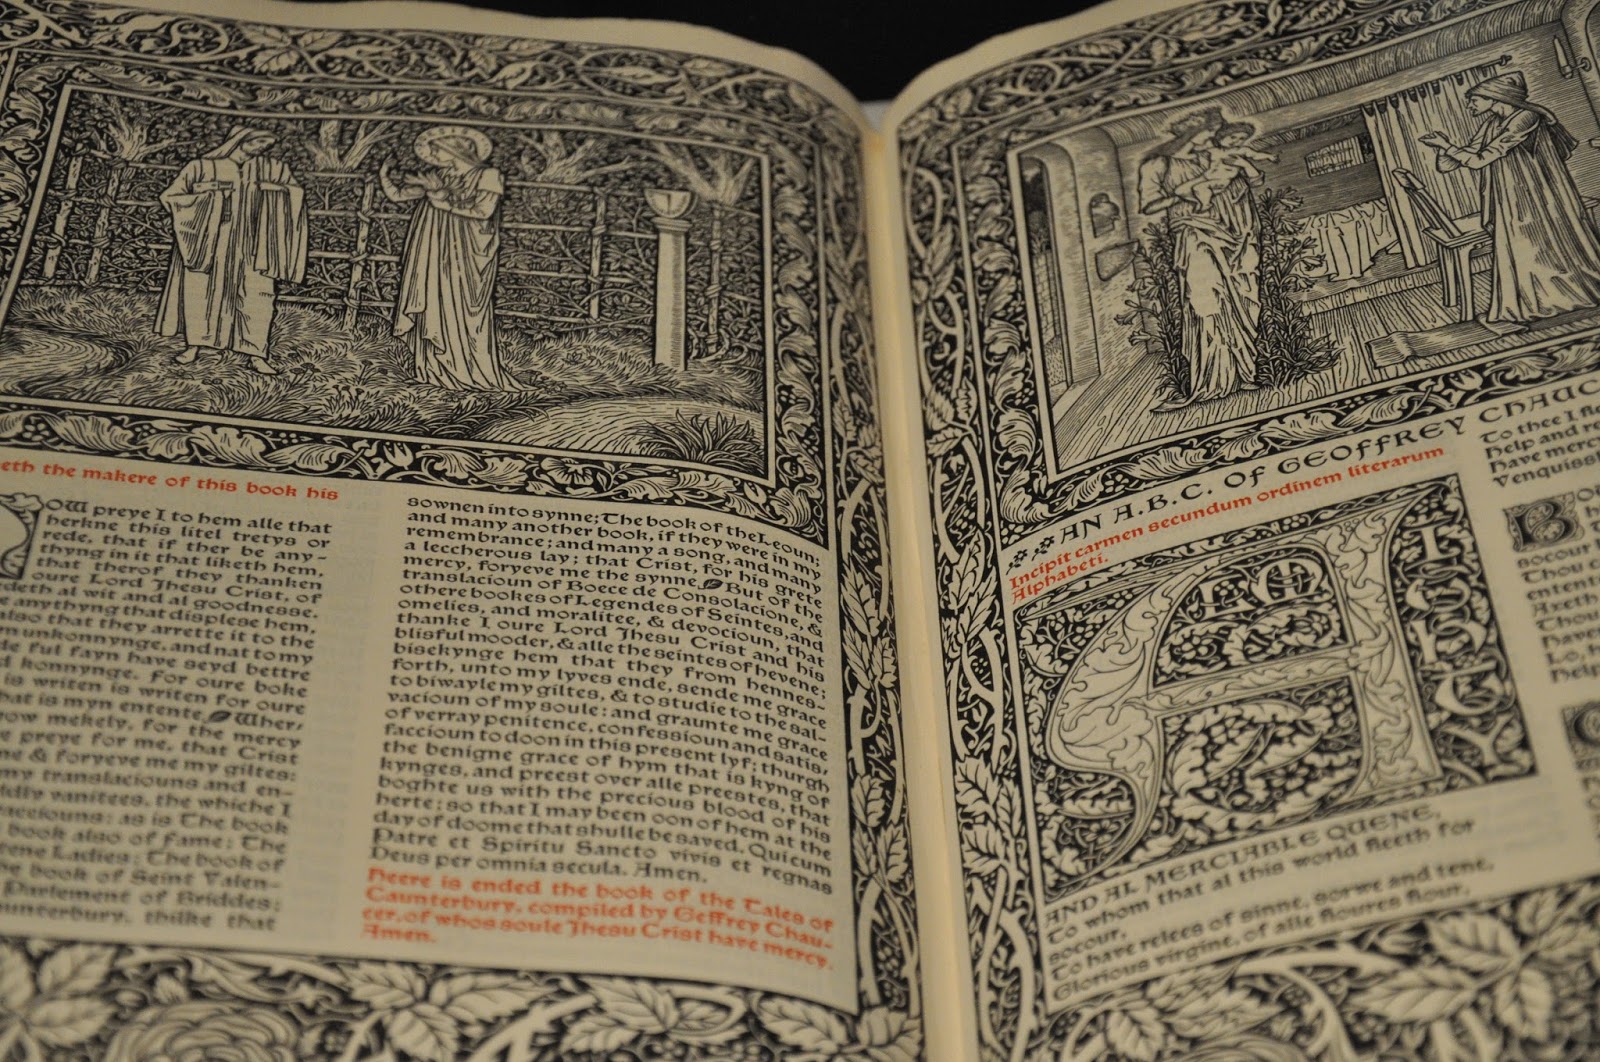 eth the makere of this book his
OW preye I to hem alle that
herkne this litel tretys or
rede, that if ther be any-
thyng in it that liketh hem,
that therof they thanken
oure Lord Jhesu Crist, of
deth al wit and al goodnesse.
anythyng that displese hem,
also that they arrette it to the
unkonnynge, and nat to my
ful fayn have seyd bettre
konnynge. For oure boke
is writen is writen for oure
hat is myn entente. Wher,
mekely, for the mercy
preye for me, that Crist
me & foryeve me my giltes:
my translaciouns and en-
ldly vanitees, the whiche I
acciouns: as is The book
book also of Fame; The
ene Ladies; The book of
book of Seint Valen-
Parlement of Briddes;
aunterbury, thilke that
sownen into synne; The book of the Leoun;
and many another book, if they were in my
remembrance; and many a song, and many
a leccherous lay; that Crist, for his grete
mercy, foryeve me the synne. But of the
translacioun of Boece de Consolacione, &
othere bookes of Legendes of Seintes, and
omelies, and moralitee, & devocioun, that
thanke I oure Lord Jhesu Crist and his
blisful mooder, & alle the seintes of hevene;
bisekynge hem that they from hennes-
forth, unto my lyves ende, sende me grace
to biwayle my giltes, & to studie to the sal-
vacioun of my soule: and graunte me grace
of verray penitence, confessioun and satis,
faccioun to doon in this present lyf; thurgh
the benigne grace of hym that is kyng of
kynges, and preest over alle preestes, that
boghte us with the precious blood of his
herte; so that I may been oon of hem at the
day of doome that shulle be saved. Qui cum
Patre et Spiritu Sancto vivis et regnas
Deus per omnia secula. Amen.
Heere is ended the book of the Tales of
Caunterbury, compiled by Geffrey Chau-
cer, of whos soule Jhesu Crist have mercy.
Amen.
AN A.B.C. OF GEOFFREY CHAUC
Incipit carmen secundum ordinem literarum
Alphabeti.
ALMIGHTY
AND AL MERCIABLE QUENE,
To whom that al this world fleeth for
socour,
To have relees of sinne, sorwe and tene,
Glorious virgine, of alle floures flour,
To thee I fle
Help and re
have mercy
Venquissh
BO
socour
Thou c
entent
Axeth
Thou
Haven
Lo, h
Help